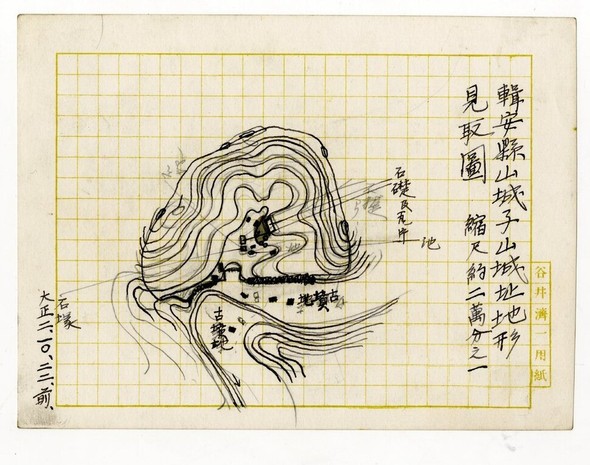 輯安縣山城子山城址地形
見取圖 縮尺約二萬分之一
谷井濟一用紙
石礎及瓦片
池
古墳地
古墳地
石塚
大正二、一〇、二二、前、